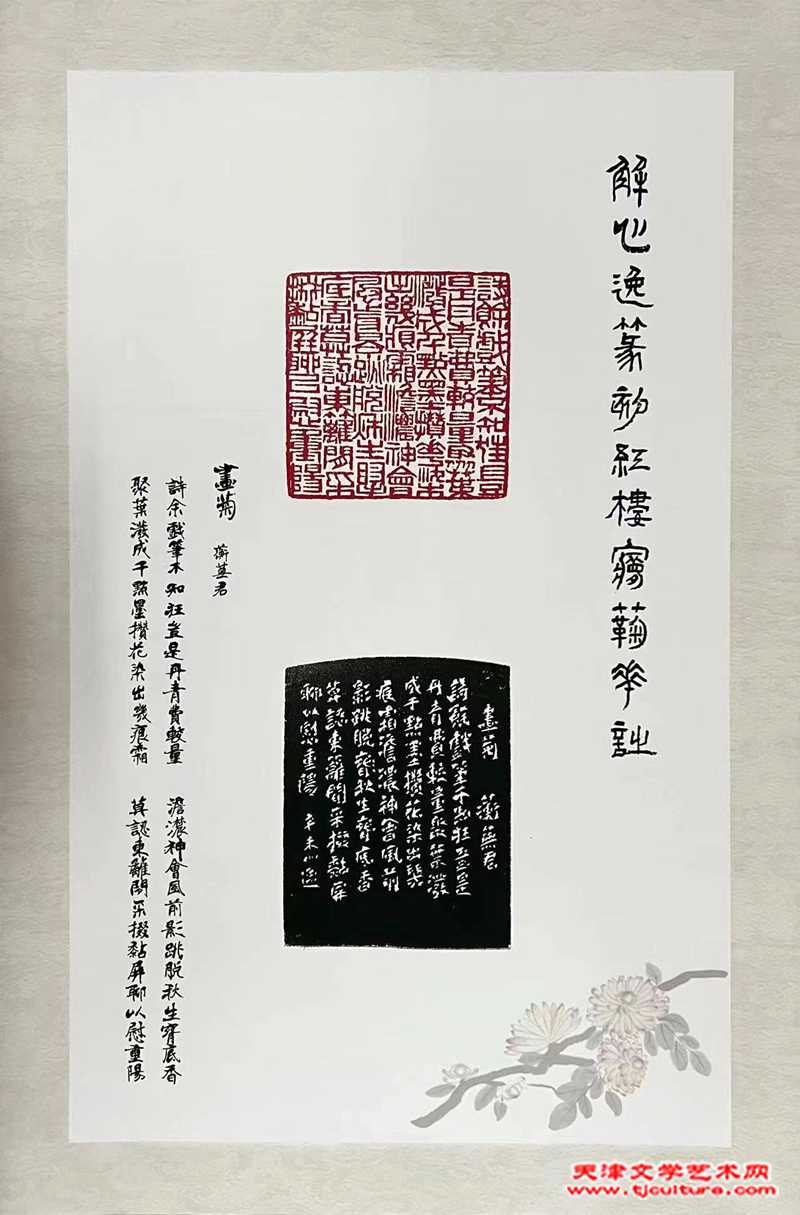 解心逸篆刻紅樓夢蘜華詩
詩餘戲筆不知狂豈
是丹青費較量聚葉
潑成千點墨攢花染
出幾痕霜澹濃神會
風前影跳脫秋生腕
底香莫認東籬閑采
掇黏屏聊以慰重陽
畫菊 蘅蕪君
詩餘戲筆不知狂豈是
丹青費較量聚葉潑
成千點墨攢花染出幾
痕霜澹濃神會風前
影跳脫秋生腕底香
莫認東籬閑采掇黏屏
聊以慰重陽 辛未心逸
畫菊 蘅蕪君
詩余戲筆不知狂豈是丹青費較量 澹濃神會風前影跳脫秋生腕底香
聚葉潑成千點墨攢花染出幾痕霜 莫認東籬閑采掇黏屏聊以慰重陽
天津文学艺术网
www.tjculture.com